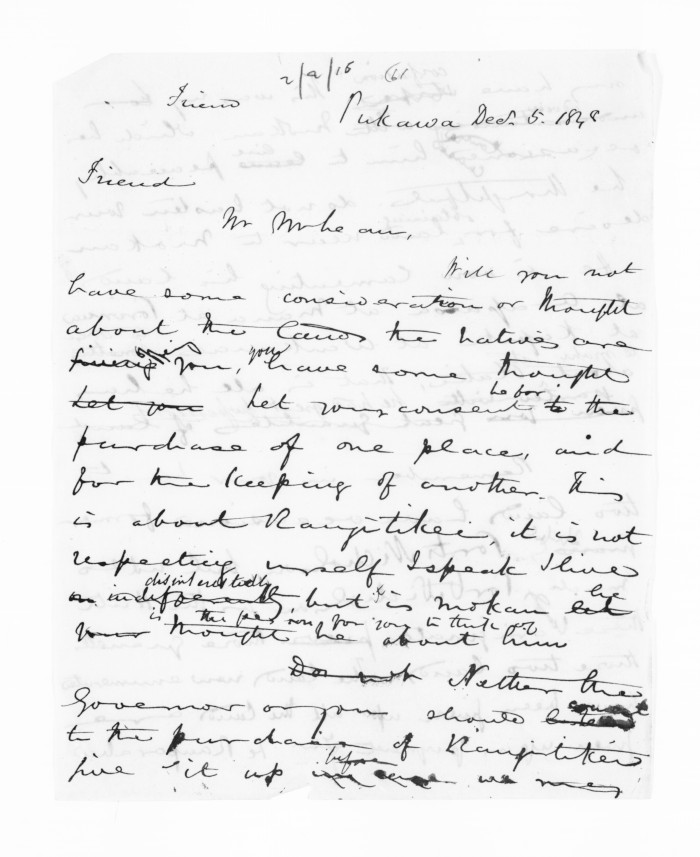 2/2/16 61
Friend Pukawa Decr. 5. 1848
Friend
Mr McLean,
Will you not
have some consideration or thought
about the land the natives are
giving you, you have some thought
Let you Let your consent be for to the
purchase of one place, and
for the keeping of another. This
is about Rangitikei, it is not
respecting myself I speak I live
disinterestedly
indifferently, but it is Mokau he
is the person you say to think of
your thought he about him
Do not Neither the
Governor or you should consent
to the purchase of Rangitikei
give it up before we may